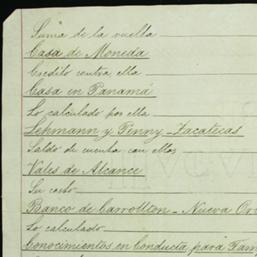 Suma de la vuelta
Casa de Moneda
Credito contra ella
Casa en Panamá
Lo calculado por ella
Lehmann y Pinny - Zacatecas
Saldo de cuenta con ellos
Vales de Alcance
Su costo
Banco de Carrollton - Nueva Or
Lo calculado
Conocimientos en Conducta para Tam